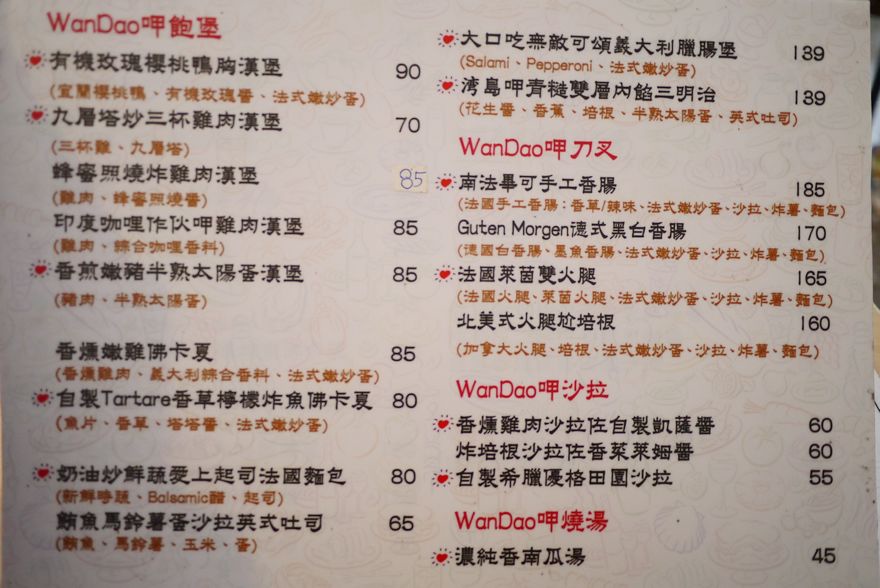 WanDao呷飽堡
有機玫瑰櫻桃鴨胸漢堡 90
(宜蘭櫻桃鴨、有機玫瑰醬、法式嫩炒蛋)
九層塔炒三杯雞肉漢堡 70
(三杯雞、九層塔)
蜂蜜照燒炸雞肉漢堡 85
(雞肉、蜂蜜照燒醬)
印度咖哩作伙呷雞肉漢堡 85
(雞肉、綜合咖哩香料)
香煎嫩豬半熟太陽蛋漢堡 85
(豬肉、半熟太陽蛋)
香燻嫩雞佛卡夏 85
(香燻雞肉、義大利綜合香料、法式嫩炒蛋)
自製Tartare香草檸檬炸魚佛卡夏 80
(魚片、香草、塔塔醬、法式嫩炒蛋)
奶油炒鮮蔬愛上起司法國麵包 80
(新鮮時蔬、Balsamic醋、起司)
鮪魚馬鈴薯蛋沙拉英式吐司 65
(鮪魚、馬鈴薯、玉米、蛋)
大口吃無敵可頌義大利臘腸堡 139
(Salami、Pepperoni、法式嫩炒蛋)
湾島呷青糙雙層內餡三明治 139
(花生醬、香蕉、培根、半熟太陽蛋、英式吐司)
WanDao呷刀叉
南法畢可手工香腸 185
(法國手工香腸：香草/辣味、法式嫩炒蛋、沙拉、炸薯、麵包)
Guten Morgen德式黑白香腸 170
(德國白香腸、墨魚香腸、法式嫩炒蛋、沙拉、炸薯、麵包)
法國萊茵雙火腿 165
(法國火腿、萊茵火腿、法式嫩炒蛋、沙拉、炸薯、麵包)
北美式火腿尬培根 160
(加拿大火腿、培根、法式嫩炒蛋、沙拉、炸薯、麵包)
WanDao呷沙拉
香燻雞肉沙拉佐自製凱薩醬 60
炸培根沙拉佐香菜萊姆醬 60
自製希臘優格田園沙拉 55
WanDao呷燒湯
濃純香南瓜湯 45